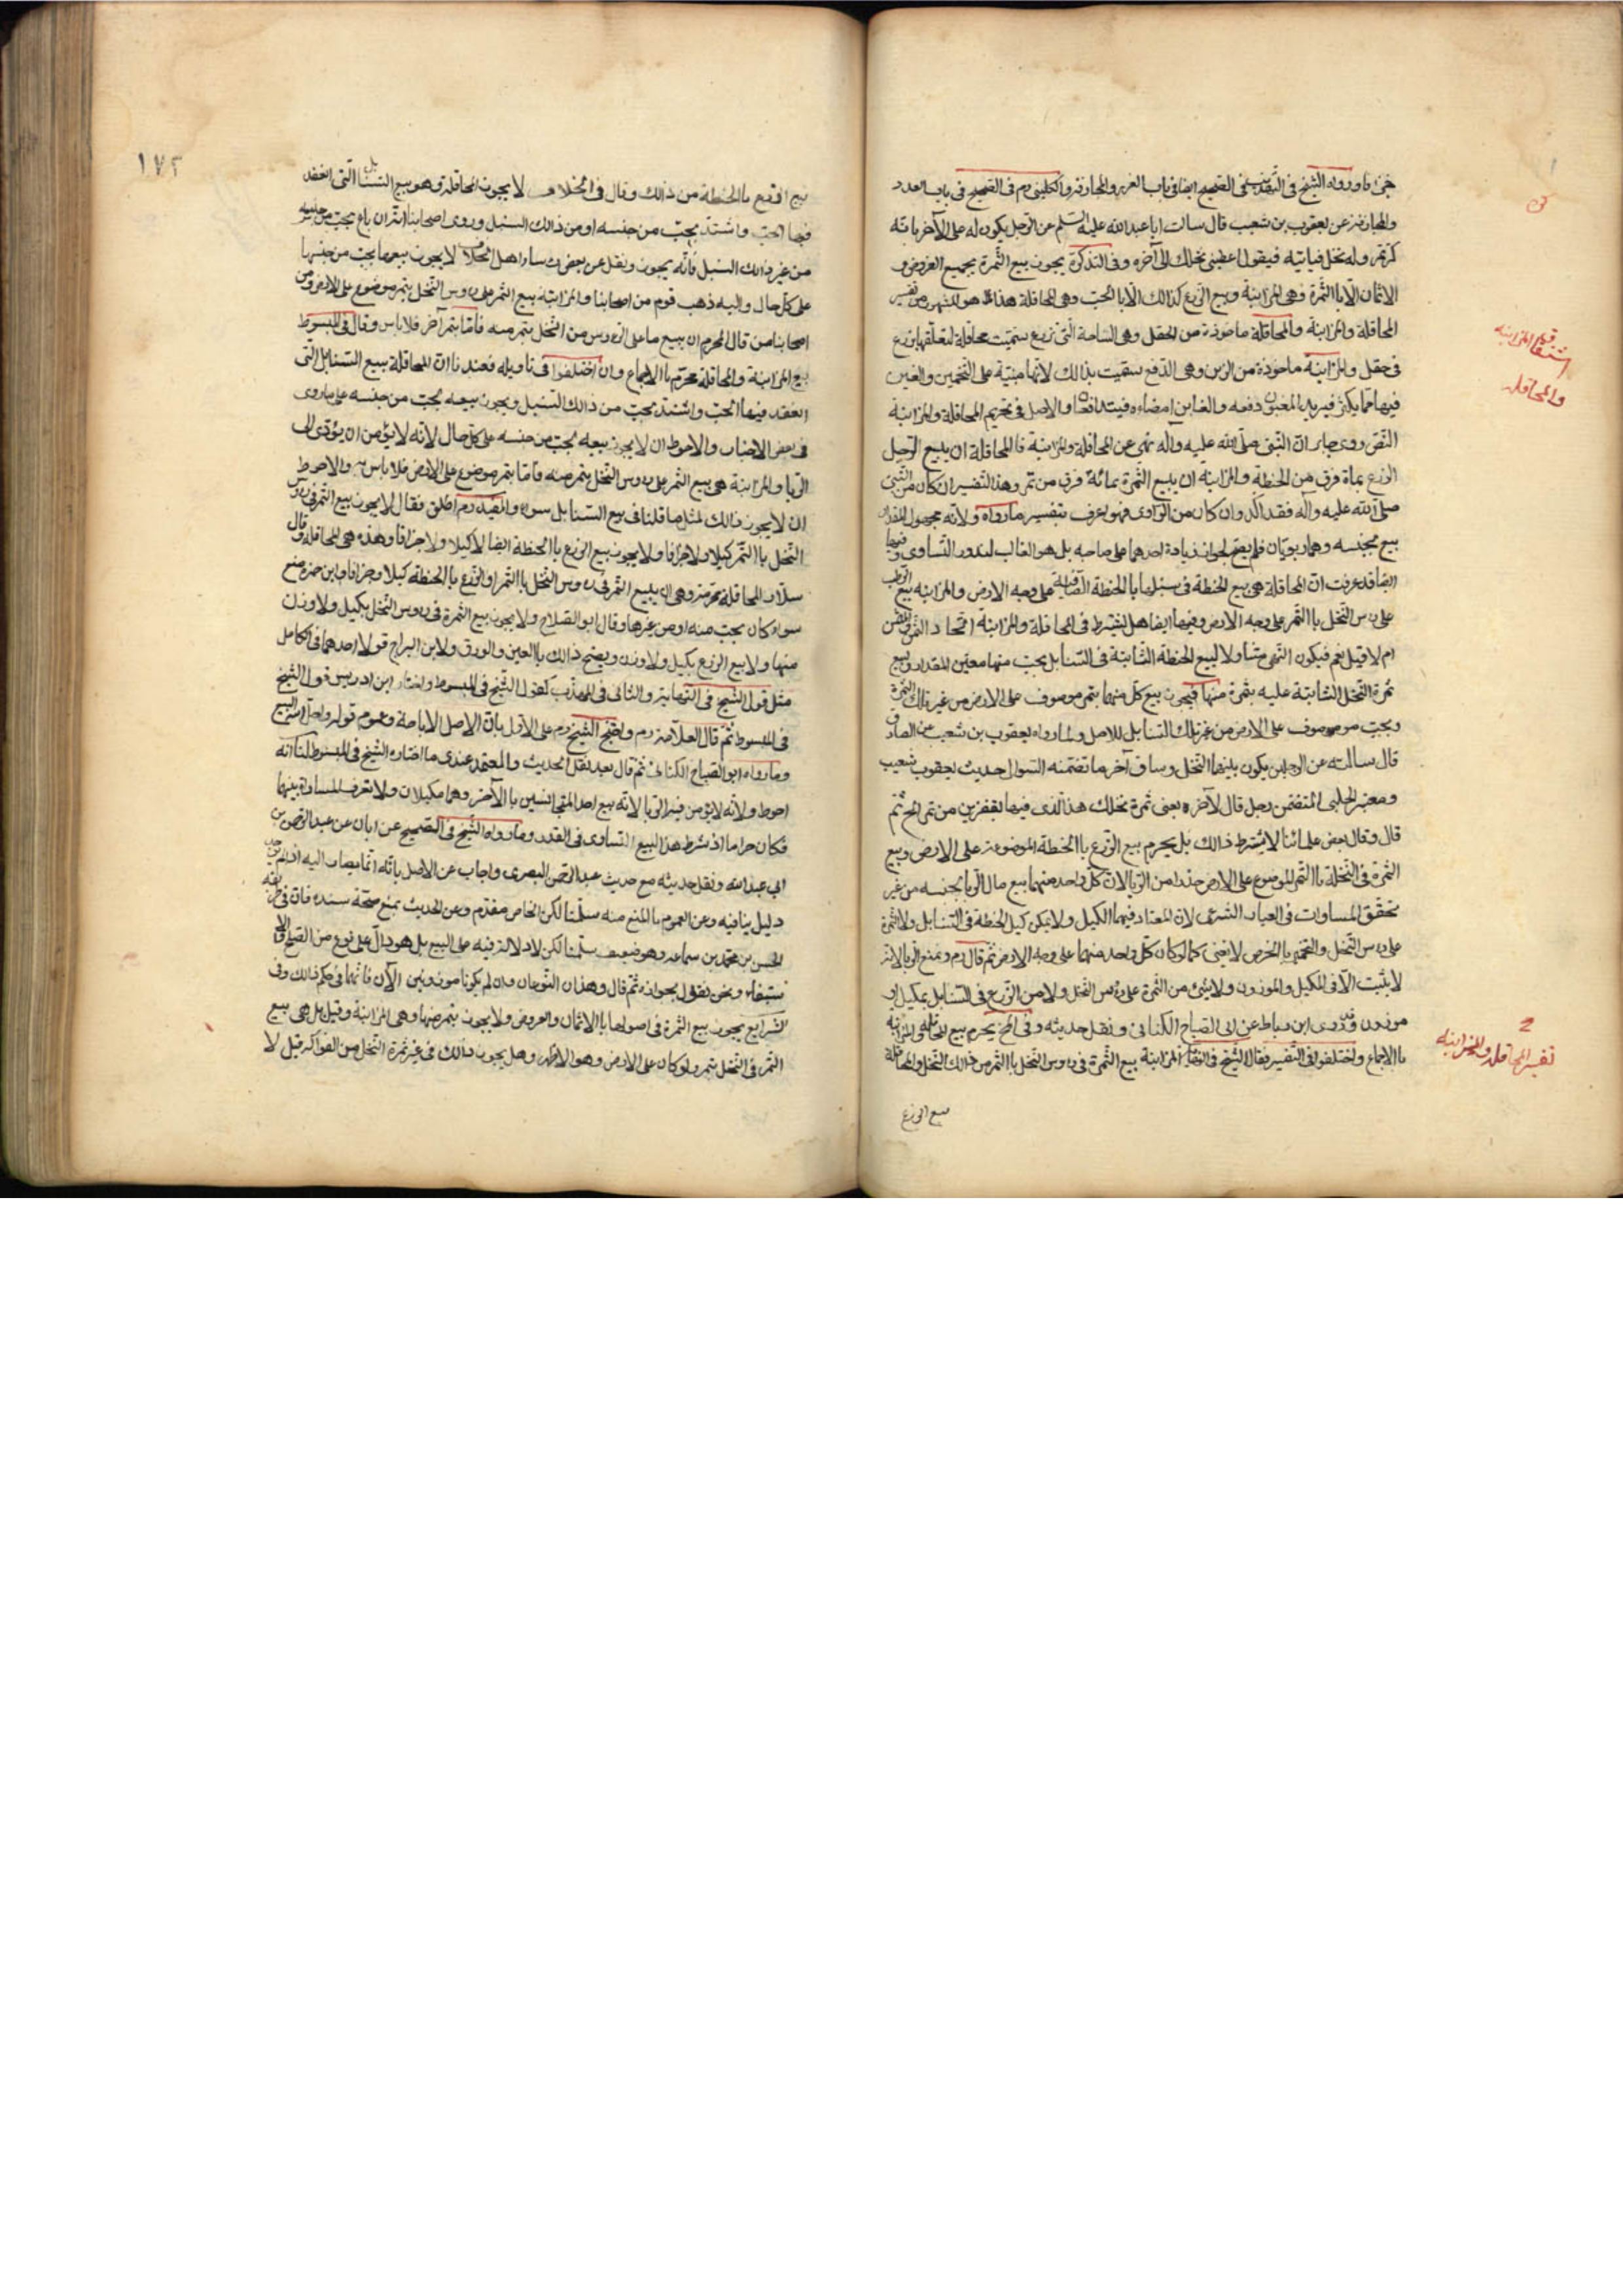 ما رواه الشيخ في الصحيح ايضا في باب الغرر والمجازفة والكليني ره في الصحيح في باب العدد
والمجازفة عن يعقوب بن شعيب قال سالت ابا عبد الله عليه السلم عن الرجل يكون له على الآخر مائة
كر تمر وله نخل فياتيه فيقول اعطني نخلك الى آخره وفي التذكرة يجوز بيع الثمرة بجميع العروض و
الاثمان الا باالثمرة وهي المزابنة وبيع الزرع كذالك الا باالحب وهي المحاقلة هذا هو المشهور من تفسير
المحاقلة والمزابنة والمحاقلة ماخوذة من الحقل وهي الساحة التي تزرع سميت محاقلة لتعلقها بزرع
في حقل والمزابنة ماخوذة من الزبن وهي الدفع سميت بذالك لانها مبنية على التخمين والغبن
فيها مما يكثر فيريد المغبون دفعه والغابن امضاءه فيتدافعا والاصل في تحريم المحاقلة والمزابنة
النص روى جابر ان النبي صلى الله عليه وآله نهى عن المحاقلة والمزابنة فالمحاقلة ان يبيع الرجل
الزرع بمائة فرق من الحنطة والمزابنة ان يبيع الثمرة بمائة فرق من تمر وهذا التفسير ان كان من النبي
صلى الله عليه وآله فقد اكد وان كان من الراوي فهو اعرف بتفسير ما رواه ولانه مجهول المقدار
بيع بجنسه وهما ربويان فلم يصح لجواز زيادة احدهما على صاحبه بل هو الغالب لندور التساوي وفيها
ايضا قد عرفت ان المحاقلة هي بيع الحنطة في سنبلها باالحنطة الصافية على وجه الارض والمزابنة بيع الرطب
على رءس النخل باالتمر على وجه الارض وفيها ايضا هل يشترط في المحاقلة والمزابنة اتحاد الثمن والمثمن
ام لا قيل نعم فيكون النهي متناولا لبيع الحنطة الثابتة في السنابل بحب منها معين المقدار وبيع
ثمرة النخل الثابتة عليه بثمرة منها فيجوز بيع كل منهما بتمر موصوف على الارض من غير تلك الثمرة
وبحب موصوف على الارض من غير تلك السنابل للاصل ولما رواه يعقوب بن شعيب عن الصادق
قال سالته عن الرجلين يكون بينهما النخل وساق آخر ما تضمنه السؤال حديث يعقوب شعيب
ومعتبر الحلبي المتضمن رجل قال لآخره يعني ثمرة نخلك هذا الذي فيها بقفيزين من تمر الخ ثم
قال وقال بعض علمائنا لا يشترط ذالك بل يحرم بيع الزرع باالحنطة الموضوعة على الارض وبيع
الثمرة في النخلة باالتمر الموضوع على الارض حذرا من الربا لان كل واحد منهما بيع مال الربا بجنسه من غير
تحقق المساوات في العيار الشرعي لان المعتاد فيهما الكيل ولا يمكن كيل الحنطة في السنابل ولا الثمرة
على رءس النخل والتخمين باالخرص لا يغني كما لو كان كل واحد منهما على وجه الارض ثم قال ره ونمنع الربا لانه
لا يثبت الا في المكيل والموزون ولا شئ من الثمرة على رءس النخل ولا من الزرع في السنابل بمكيل او
موزون وقد روى ابن رباط عن ابي الصباح الكناني ونقل حديثه وفي لخ يحرم بيع المحاقلة والمزابنة
باالاجماع واختلفوا في التفسير فقال الشيخ في النهاية المزابنة بيع الثمرة في رؤس النخل باالتمر من ذالك النخل والمحاقلة
بيع الزرع
اشتقاق المزابنه
والمحاقله
تفسير المحاقله والمزابنه
١٧٢
بيع الزرع باالحنطة من ذالك وقال في الخلاف لا يجوز المحاقلة وهو بيع السنابل التي انعقد
فيها الحب واشتد بحب من جنسه او من ذالك السنبل وروى اصحابنا انه ان باع بحب من جنسه
من غير ذالك السنبل فانه يجوز ونقل عن بعض لا يجوز بيعها بحب من جنسها
على كل حال واليه ذهب قوم من اصحابنا والمزابنة بيع الثمر على رءوس النخل بتمر موضوع على الارض ومن
اصحابنا من قال المحرم ان يبيع ما على الرءوس من النخل بتمر منه فاما بتمر آخر فلا باس وقال في المبسوط
بيع المزابنة والمحاقلة محرم باالاجماع وان اختلفوا في تاويله فعندنا ان المحاقلة بيع السنابل التي
انعقد فيها الحب واشتد بحب من ذالك السنبل ويجوز بيعه بحب من جنسه على ما روى
في بعض الاخبار والاحوط ان لا يجوز بيعه بحب من جنسه على كل حال لانه لا يؤمن ان يؤدي الى
الربا والمزابنة هي بيع الثمر على رءوس النخل بتمر منه فاما بتمر موضوع على الارض فلا باس به والاحوط
ان لا يجوز ذالك لمثل ما قلناه في بيع السنابل سواء والمفيد ره اطلق فقال لا يجوز بيع الثمر في رءوس
النخل باالتمر كيلا ولا جزافا ولا يجوز بيع الزرع باالحنطة ايضا لا كيلا ولا جزافا وهذه هي المحاقلة وقال
سلار المحاقلة محرمة وهي ان يبيع الثمر في رءوس النخل باالتمر او الزرع باالحنطة كيلا وجزافا وابن حمزة منع
سواء كان بحب منه او من غيرها وقال ابو الصلاح ولا يجوز بيع الثمرة في رءوس النخل بكيل ولا وزن
منها ولا بيع الزرع بكيل ولا وزن ويصح ذالك باالعين والورق ولابن البراج قولا احدهما في الكامل
مثل قول الشيخ في النهاية والثاني في المهذب كقول الشيخ في المبسوط واختار ابن ادريس قول الشيخ
في المبسوط ثم قال العلامة ره واحتج الشيخ ره على الاول بان الاصل الاباحة وعموم قوله واحل الله البيع
وما رواه ابو الصباح الكناني ثم قال بعد نقل الحديث والمعتمد عندي ما اختاره الشيخ في المبسوط لنا انه
احوط ولانه لا يؤمن فيه الربا لانه بيع احد المتجانسين باالآخر وهما مكيلان ولا نعرف المساواة بينهما
فكان حراما اذ شرط هذا البيع التساوي في القدر وما رواه الشيخ في الصحيح عن ابان عن عبد الرحمن بن
ابي عبد الله ونقل حديثه مع حديث عبد الرحمن البصري واجاب عن الاصل بانه انما يصار اليه اذا لم يوجد
دليل ينافيه وعن العموم باالمنع منه سلمنا لكن الخاص مقدم وعن الحديث بمنع صحة سنده فان في طريقه
الحسن بن محمد بن سماعه وهو ضعيف سلمنا لكن لا دلالة فيه على البيع بل هو دال على نوع من الصلح والا
ستيفاء ونحن نقول بجوازه ثم قال وهذان النوعان وان لم يكونا موزونين الآن فانهما في حكم ذالك وفي
الشرايع يجوز بيع الثمرة في اصولها باالاثمان والعروض ولا يجوز بتمر منها وهي المزابنة وقيل بل هي بيع
الثمر في النخل بتمر ولو كان على الارض وهو الاظهر وهل يجوز ذالك في غير ثمرة النخل من الفواكه قيل لا